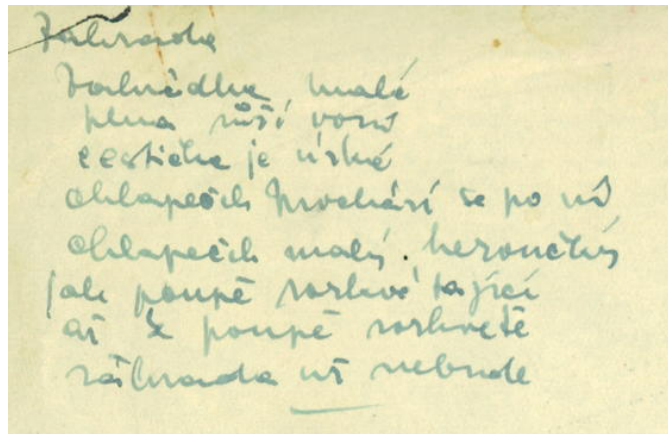 Zahrada
Zahrádka malá
plna růží voní
cestička je úzká
chlapeček prochází se po ní
chlapeček malý heroučký
jak poupě rozkvétající
až poupě rozkvete
záhrada už nebude